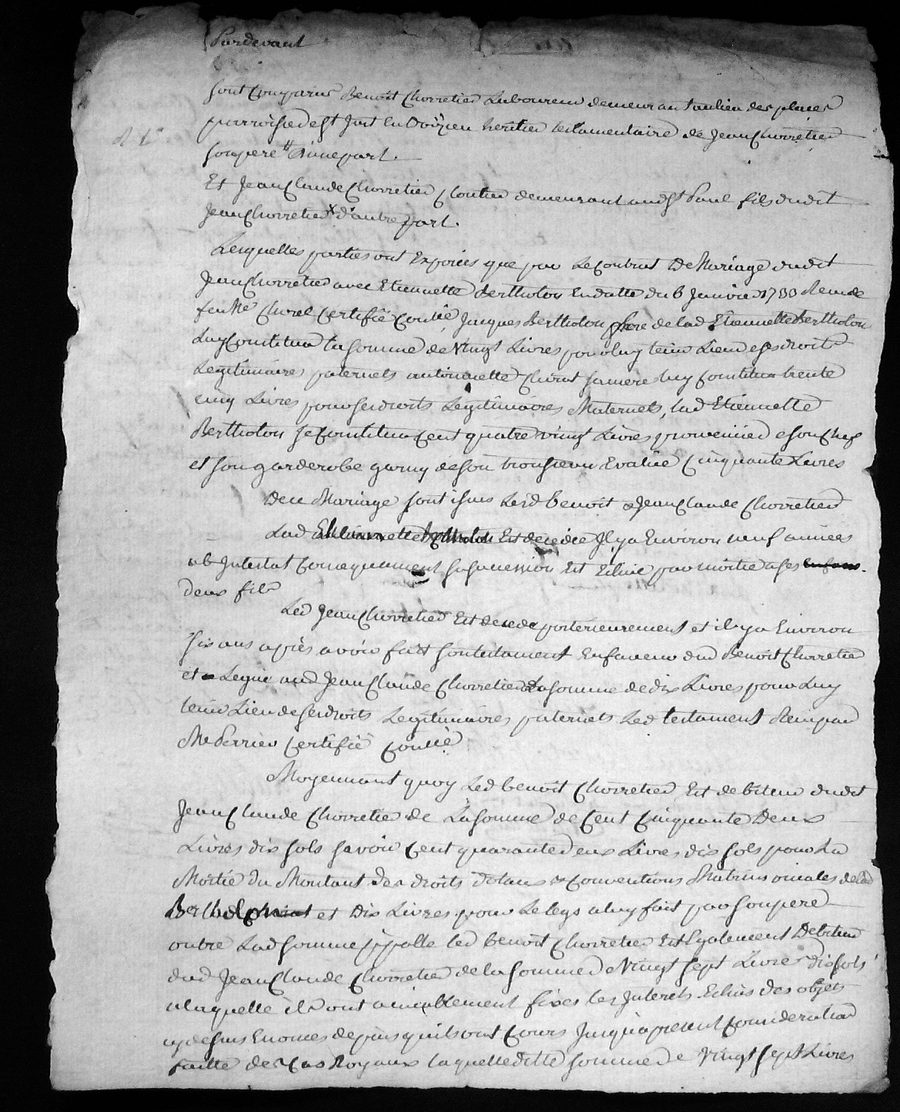 Pardevant
sont Comparus Benoit Chorretier Laboureur demeurant au lieu des places
parroisse de St Just en Doizieu heritier testamentaire de Jean Chorretier
son pere d'une part.
Et Jean Claude Chorretier Cloutier demeurant aud St Paul fils dudit
Jean Chorretier d'autre part.
Lesquelles parties ont Exposées que par Le Contrat De Mariage dudit
Jean Chorretier avec Etiennette Bertholon En datte du 6 Janvier 1733 Receu de
feu Me Churel Certifié Controllé, Jacques Bertholon pere de lad Etiennette Bertholon
Luy Constitua la somme de vingt Livres pour luy tenir Lieu de ses droits
Legitimaires paternels antoinette Chirat sa mere luy Constitua trente
cinq Livres pour ses droits Legitimaires Maternels, Lad Etiennette
Bertholon se Constitua Cent quatre vingt Livres provenües de son Chef
et son garderobe garny de son trousseau Evalué Cinquante Livres
De ce Mariage sont issus Lesd benoit & Jean Claude Chorretier
Lad Etiennette Bertholon Est decedée Il y a Environ neuf années
ab Intestat Consequemment sa succession Est Echüe par moitié a ses enfans
deux fils
Led Jean Chorretier Est decedé posterieurement et il y a Environ
six ans après avoir fait son testament En faveur dud Benoit Chorretier
et Legue aud Jean Claude Chorretier La somme de dix Livres pour Luy
tenir Lieu de ses droits Legitimaires paternels Led testament Receu par
Me Perrier Certifié Controllé
Moyennant quoy Led benoit Chorretier Est debiteur dudit
Jean Claude Chorretier de La somme de Cent Cinquante Deux
Livres dix sols savoir Cent quarante deux Livres dix sols pour La
Moitié du Montant des droits dotaux & Conventions Matrimoniales de lad
Bertholon et Dix Livres pour Le legs a luy fait par son pere
outre Lad somme pp.alle led benoit Chorretier Est Egalement Debiteur
dud Jean Claude Chorretier de la somme de Vingt sept Livres dix sols
a laquelle ils ont amiablement fixés les Interets Echus des objets
cy dessus Enoncés depuis qu'ils ont Cours Jusqu'a present Consideration
faitte de Cas Royaux laquelle ditte somme de vingt sept Livres